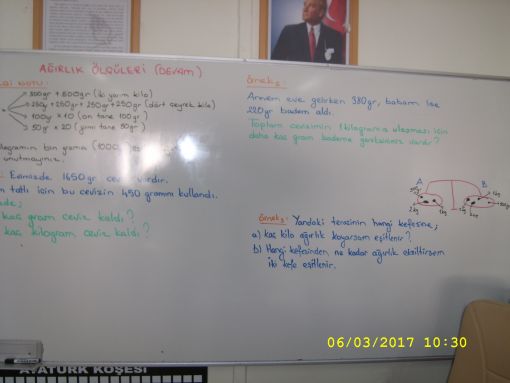 AĞIRLIK ÖLÇÜLERİ (DEVAM)
500gr + 500gr (iki yarım kilo)
250g + 250gr + 250gr + 250gr (dört çeyrek kilo)
100g x 10 (on tane 100gr)
50gr x 20 (yirmi tane 50gr)
bin grama (1000
unutmayınız.
Evimizde 1650gr ceviz vardır.
tatlı için bu cevizin 450 gramını kullandı.
kaç gram ceviz kaldı?
kaç kilogram ceviz kaldı?
Örnek:
Annem eve gelirken 380gr, babam ise
220gr badem aldı.
Toplam cevizimin 1kilograma ulaşması için
daha kaç gram bademe gereksinimiz vardır?
A B
Örnek: Yandaki terazinin hangi kefesine;
a) kaç kilo ağırlık koyarsam eşitlenir?
b) Hangi kefesinden ne kadar ağırlık eksiltirsem
iki kefe eşitlenir.
06/03/2017 10:30
ATATÜRK KÖŞESİ